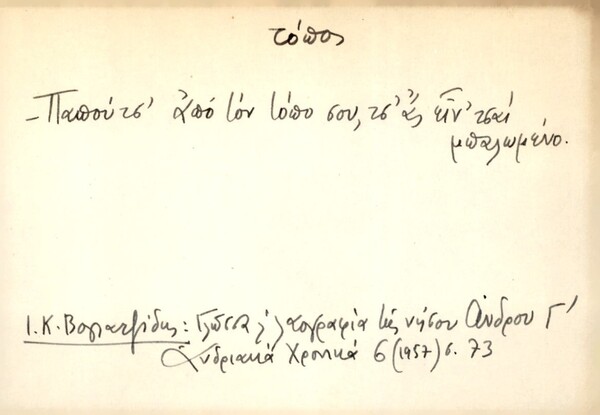 τόπος
- Παπούτσ' ἀπό τόν τόπο σου, τσ' ἄς εἶν' τσαί
μπαλωμένο.
Ι. Κ. Βογιατζίδης: Γλῶσσα & λαογραφία τῆς νήσου Ἄνδρου Γ'
Ἀνδριακά Χρονικά 6 (1957) σ. 73